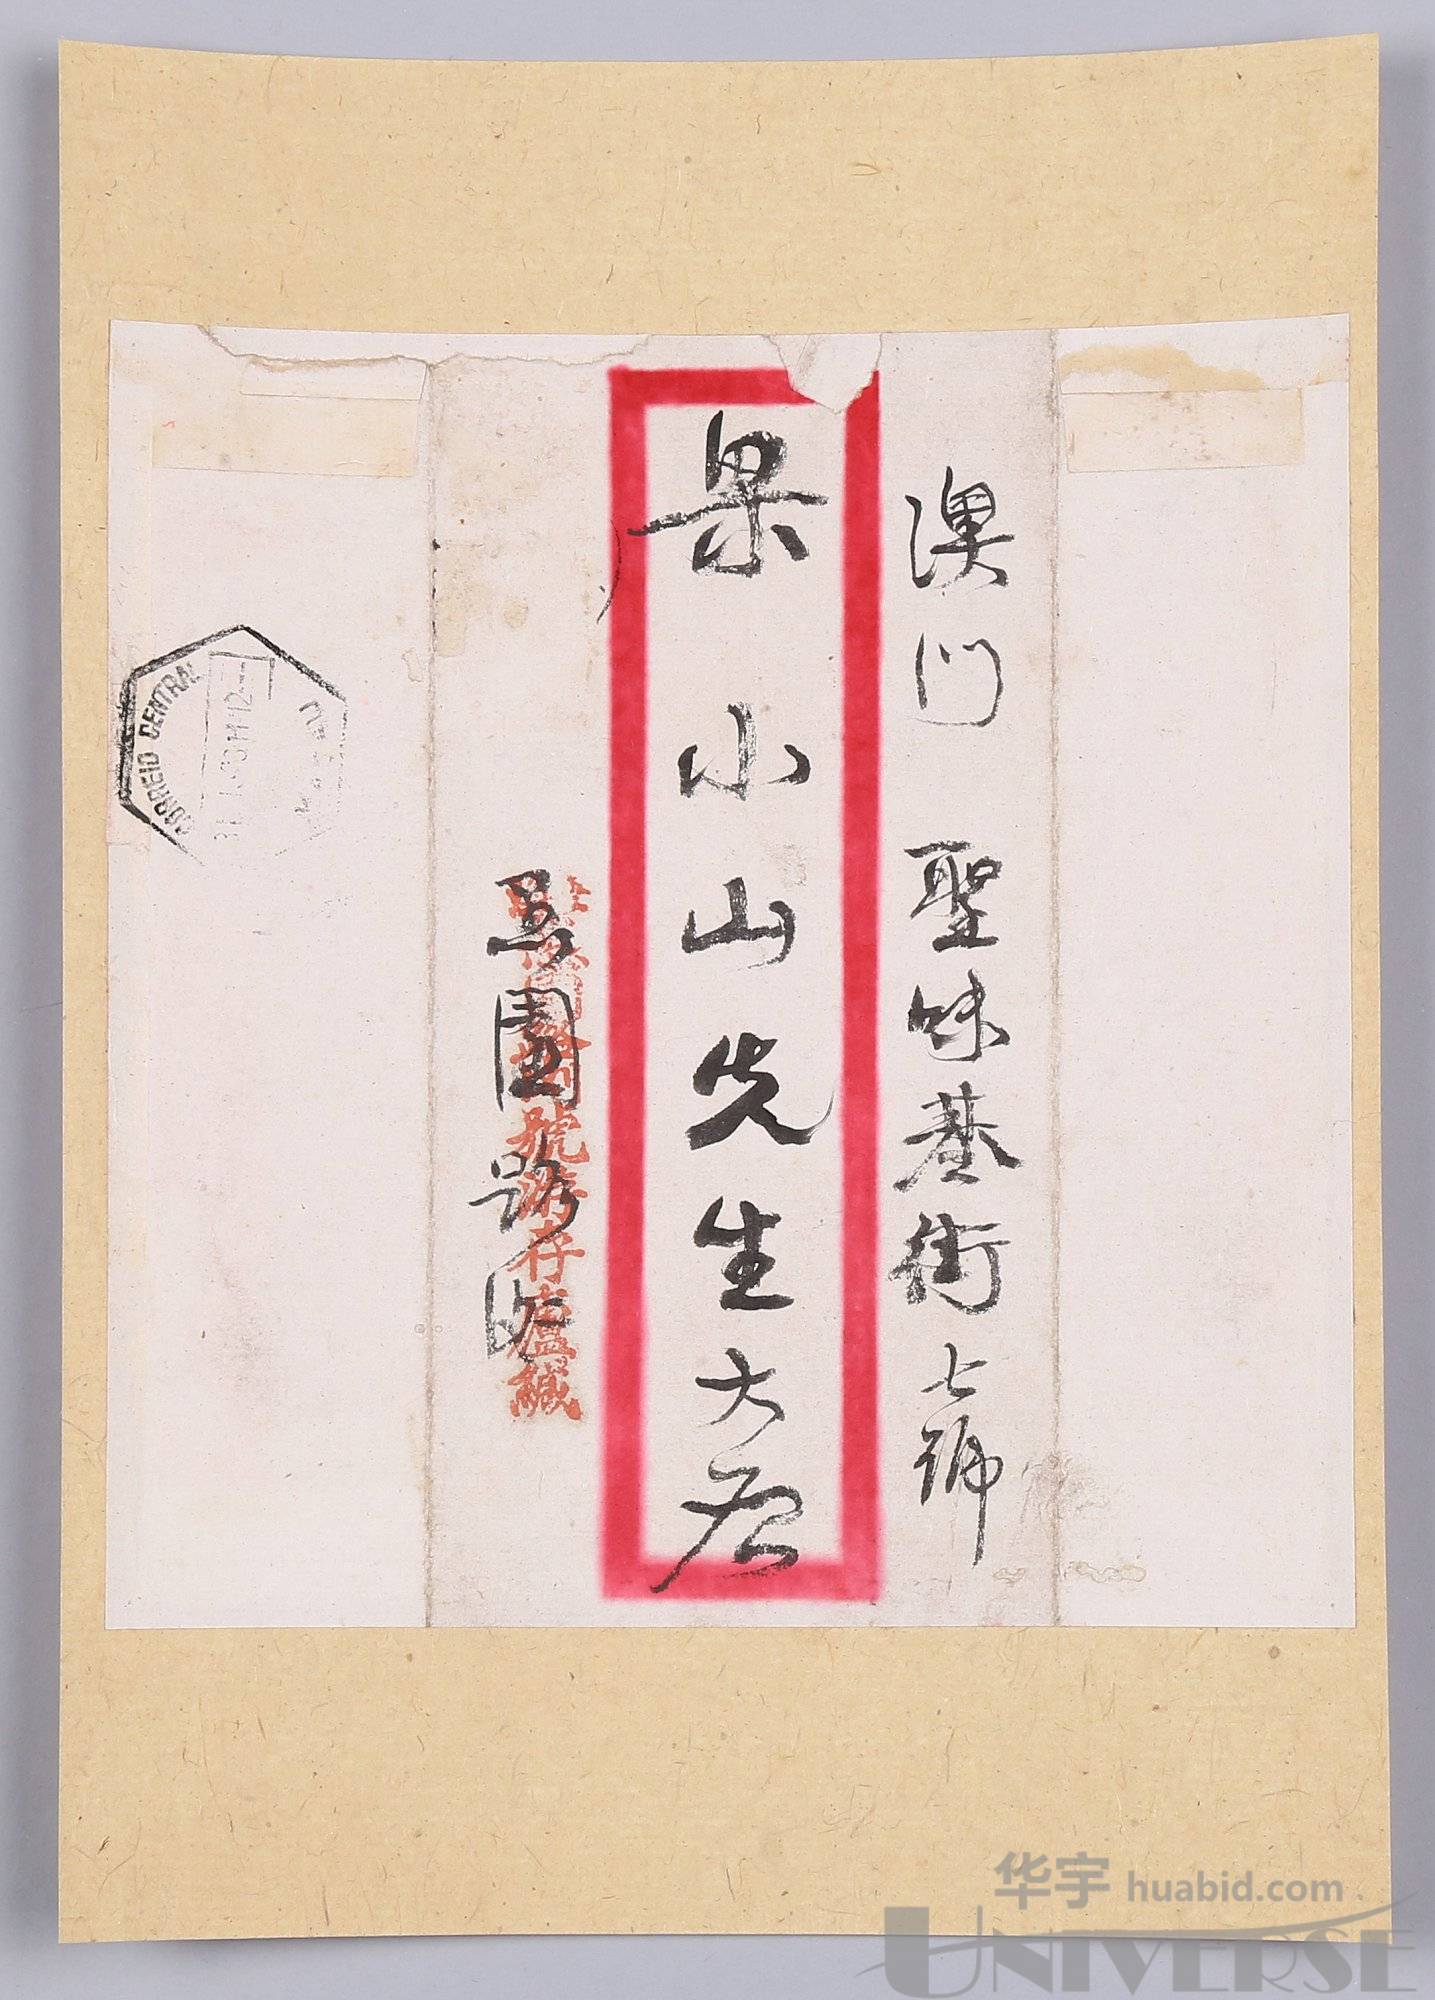 澳門 聖味基街七號
果小山先生大啟
愚園路
號游存廬緘
CORREIO CENTRAL
华宇 huabid.com
UNIVERSE